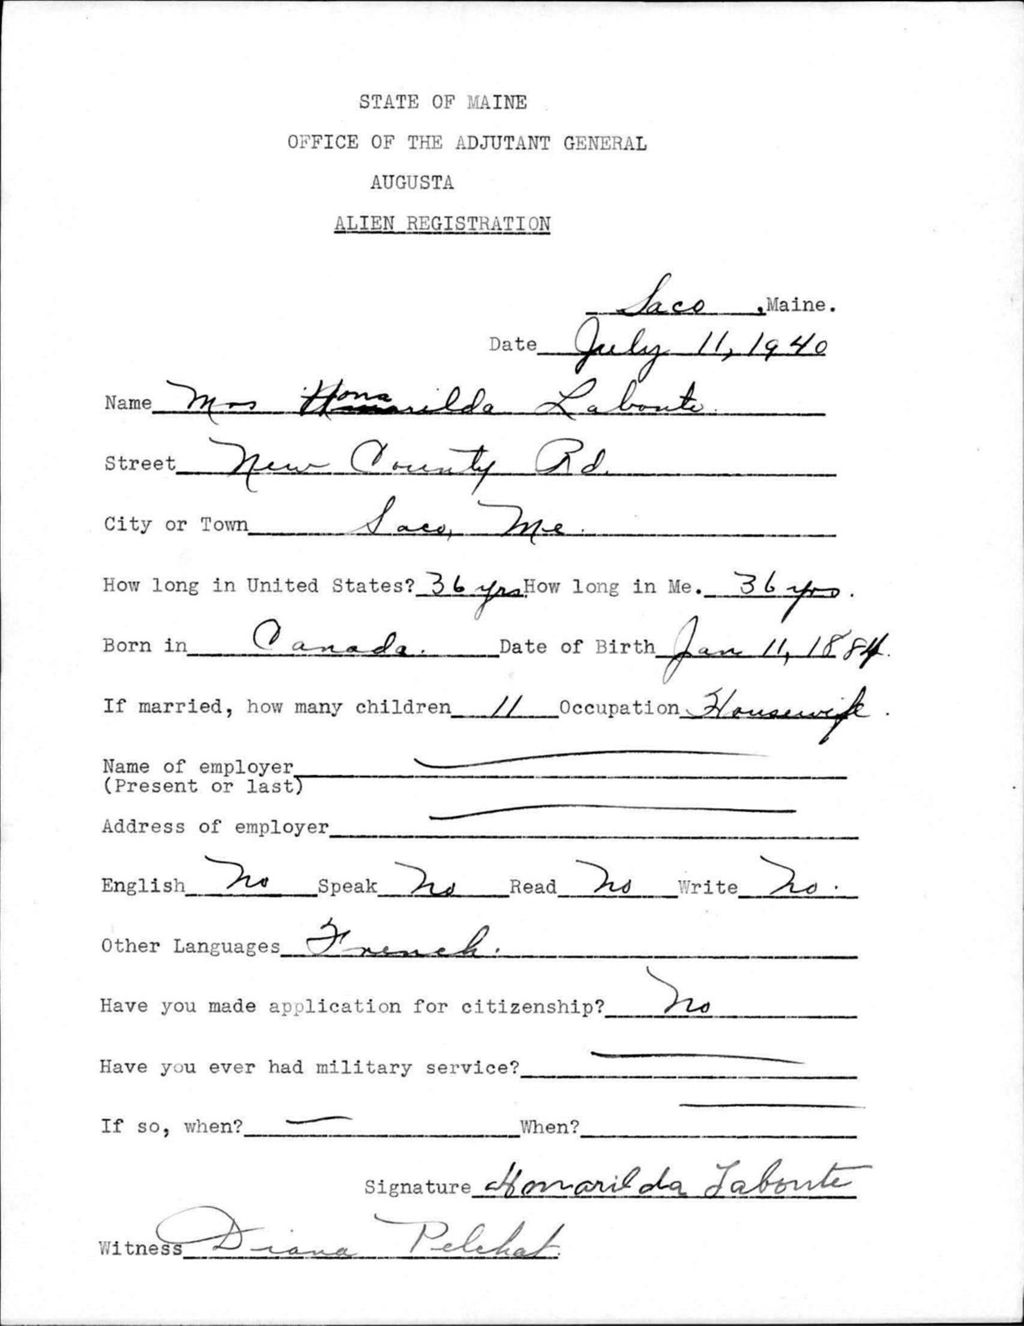 STATE OF MAINE
OFFICE OF THE ADJUTANT GENERAL
AUGUSTA
ALIEN REGISTRATION
Saco, Maine.
Date July 11, 1940
Name Mrs Honarilda Labonte.
Street New County Rd.
City or Town Saco, Me.
How long in United States? 36 yrs How long in Me. 36 yrs.
Born in Canada. Date of Birth Jan 11, 1884.
If married, how many children 11 Occupation Housewife.
Name of employer —
(Present or last)
Address of employer —
English No Speak No Read No Write No.
Other Languages French.
Have you made application for citizenship? No
Have you ever had military service? —
If so, when? — When? —
Signature Honarilda Labonte
Witness Diana Pelchat